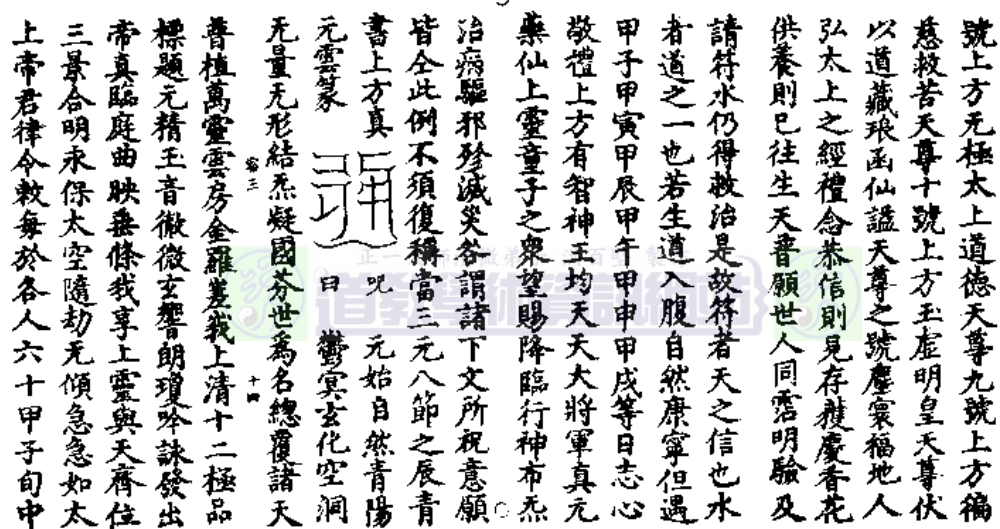 號上方无極太上道德天尊九號上方徧
慈救苦天尊十號上方玉虛明皇天尊伏
以道藏琅函仙謚天尊之號塵寰福地人
弘太上之經禮念恭信則見存獲慶香花
供養則已往生天普願世人同霑明驗及
請符水仍得救治是故符者天之信也水
者道之一也若生道入腹自然康寧但遇
甲子甲寅甲辰甲午甲申甲戌等日志心
敬禮上方有智神王均天天大將軍真元
藥仙上靈童子之衆望賜降臨行神布炁
治病驅邪殄滅災咎謂諸下文所祝意願
皆仝此例不須復稱當三元八節之辰青
書上方真 呪 元始自然青陽
元雲篆 曰 鬱冥玄化空洞
无量无形結炁凝國芬世爲名總覆諸天
卷三 十四
普植萬靈雲房金羅差我上清十二極品
標題元精玉音微微玄響朗瓊吟詠發出
帝真臨庭曲映垂條我享上靈與天齊位
三景合明永保太空隨劫无傾急急如太
上帝君律令敕每於各人六十甲子旬中
道教學術資訊網站